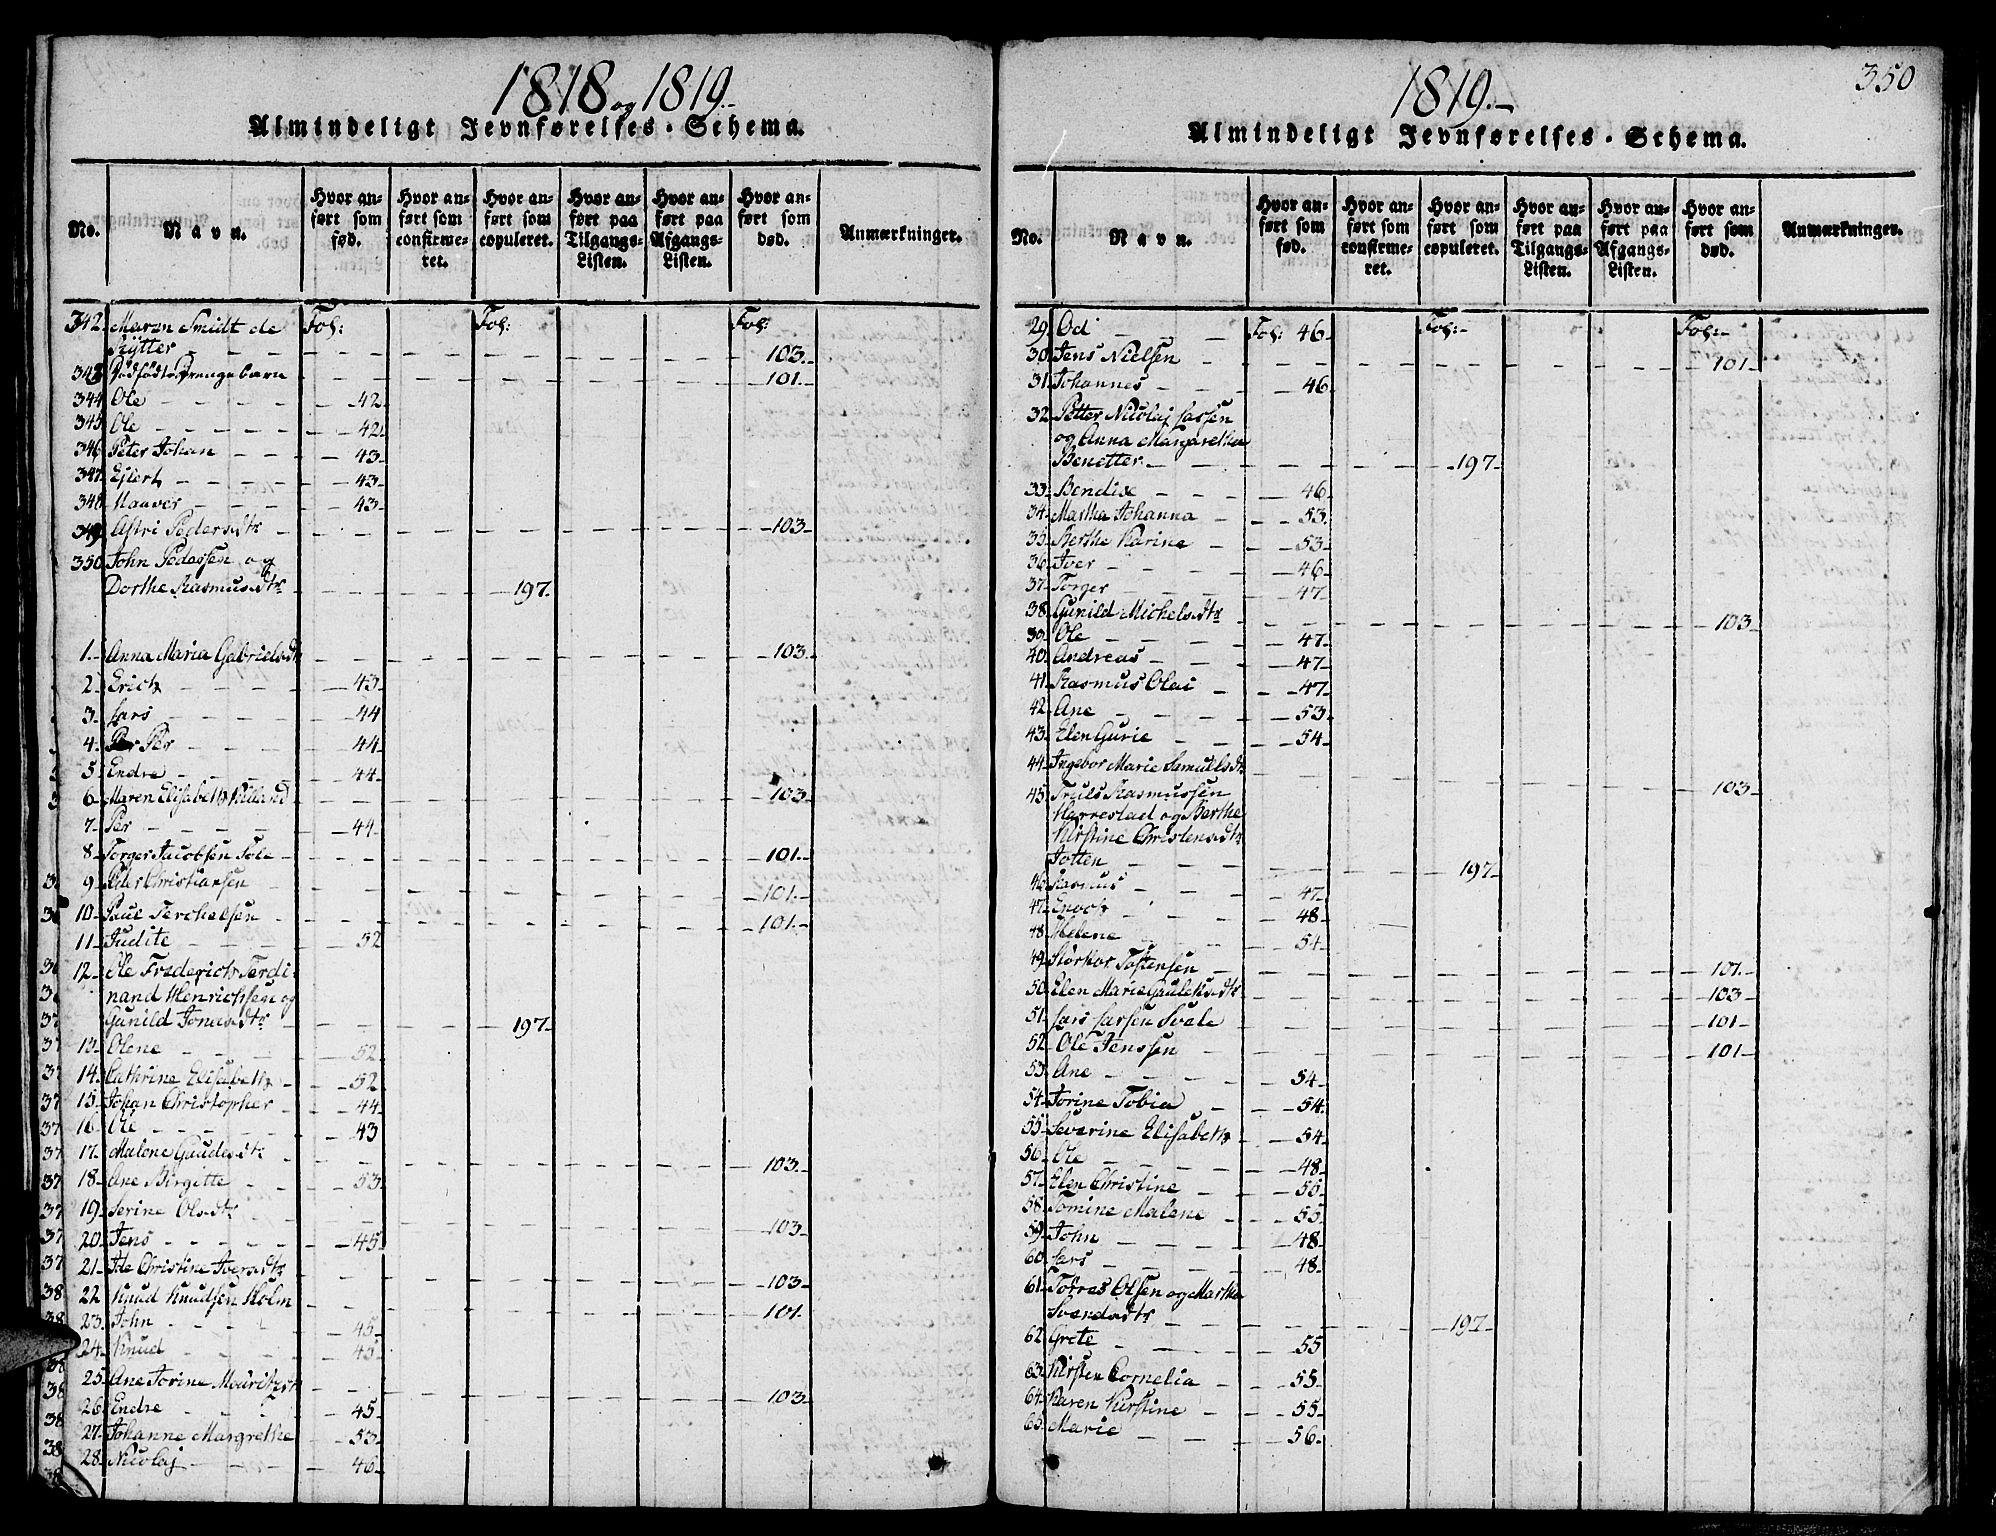 1818 og 1819.-
Almindeligt Jevnførelses-Schema.
No.
Navn.
Hvor anført som fød.
Hvor anført som confirmeret.
Hvor anført som copuleret.
Hvor anført paa Tilgangs-Listen.
Hvor anført paa Afgangs-Listen.
Hvor anført som død.
Anmærkninger.
342. Maren Smidt de Fol: Fol: Fol:
Rÿtter - - - 103.-
343 Dødfødte Drengebarn - - - 101.-
344 Ole - - - 42.
345 Ole - - - 42.
346 Peter Johan - - - 43-
347. Eilert - - - 43-
348 Haaver - - - 43-
349 Astri Pedersdtr - - - 103
350 John Pedersen og
Dorthe Rasmusdtr - - - 197.
1. Anna Maria Gabrielsdtr - - - 103.
2. Erich - - - 43-
3. Lars - - - 44
4. Per - - - 44.
5. Endre - - - 44.
6. Maren Elisabeth Killand - - - 103.
7. Per - - - 44-
8. Torger Jacobsen Sole - - - 101.
9. Peder Christiansen - - - 101.-
10. Paul Terchelsen - - - 101.-
11. Judite - - - 52
12. Ole Frederich Ferdi-
nand Henrichsen og
Gunild Jonasdtr - - - 197-
13. Olene - - - 52.
14. Cathrine Elisabeth - - - 52.
15. Johan Christopher - - - 44-
16. Ole - - - 43
17. Malene Gaudesdtr - - - 103.
18. Ane Birgitte - - - 53.
19. Serine Olsdtr - - - 103.
20. Jens - - - 45.
21. Ide Christine Iversdtr - - - 103.
22. Knud Knudsen Holm - - - 101.
23. John - - - 45.
24. Knud - - - 45.
25. Ane Torine Mouritzdtr - - - 103.
26. Endre - - - 45.
27. Johanne Margrethe - - - 53.
28. Nicolaj - - - 46.
1819.-
350
Almindeligt Jevnførelses-Schema.
No.
Navn.
Hvor anført som fød.
Hvor anført som confirmeret.
Hvor anført som copuleret.
Hvor anført paa Tilgangs-Listen.
Hvor anført paa Afgangs-Listen.
Hvor anført som død.
Anmærkninger.
29. Od - - - Fol: 46. Fol:- Fol:-
30. Jens Nielsen - - - 101.
31. Johannes - - - 46
32. Petter Nicolaj Lassen
og Anna Margaretha
Benetter - - - 197-
33. Bendix - - - 46.
34. Martha Johanna - - - 53.
35. Berthe Karine - - - 53-
36. Iver - - - 46-
37. Torger - - - 47-
38. Gunild Michelsdtr - - - 103-
39. Ole - - - 47.
40. Andreas - - - 47.
41. Rasmus Olai - - - 47-
42. Ane - - - 53.
43. Elen Gurie - - - 54-
44. Ingebor Marie Samuelsdtr - - - 103-
45. Truls Rasmussen
Harrestad og Berthe
Kirstine Christensdtr
Totten - - - 197-
46. Rasmus - - - 47-
47. Enoch - - - 48-
48. Helene - - - 54-
49. Størkor Tostensen - - - 101.-
50. Elen Marie Gaulehsdtr - - - 103
51. Lars Larsen Svale - - - 101-
52. Ole Jenssen - - - 101-
53. Ane - - - 54-
54. Torine Tobia - - - 54-
55. Severine Elisabeth - - - 54-
56. Ole - - - 48-
57. Elen Christine - - - 55-
58. Tomine Malene - - - 55-
59. John - - - 48-
60. Lars - - - 48-
61. Torres Olsen og Martha
Svendsdtr - - - 197-
62. Grete - - - 55
63. Kirsten Cornelia - - - 55-
64. Karen Kirstine - - - 55-
65. Marie - - - 56.